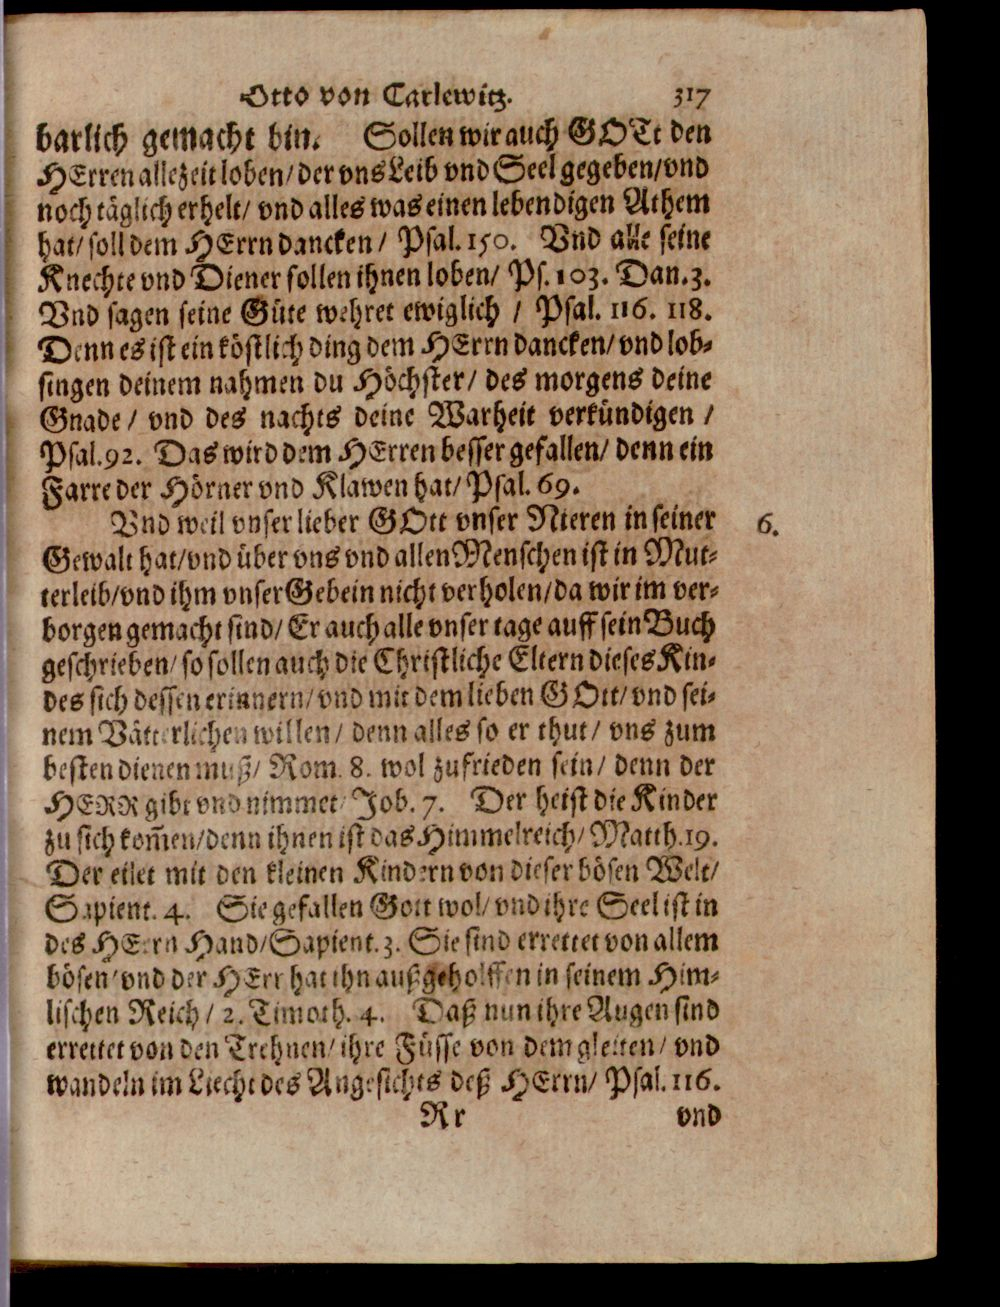 Otto von Carlewitz. 317
barlich gemacht bin. Sollen wir auch GOTt den
HErren allezeit loben/ der vns Leib vnd Seel gegeben/ vnd
noch täglich erhelt/ vnd alles was einen lebendigen Athem
hat/ soll dem HErrn dancken/ Psal. 150. Vnd alle seine
Knechte vnd Diener sollen ihnen loben/ Ps. 103. Dan. 3.
Vnd sagen seine Güte wehret ewiglich / Psal. 116. 118.
Denn es ist ein köstlich ding dem HErrn dancken/ vnd lob-
singen deinem nahmen du Höchster/ des morgens deine
Gnade / vnd des nachts deine Warheit verkündigen /
Psal. 92. Das wird dem HErren besser gefallen/ denn ein
Farre der Hörner vnd Klawen hat/ Psal. 69.
Vnd weil vnser lieber GOtt vnser Nieren in seiner 6.
Gewalt hat/ vnd über vns vnd allen Menschen ist in Mut-
terleib/ vnd ihm vnser Gebein nicht verholen/ da wir im ver-
borgen gemacht sind/ Er auch alle vnser tage auff sein Buch
geschrieben/ so sollen auch die Christliche Eltern dieses Kin-
des sich dessen erinnern/ vnd mit dem lieben GOtt/ vnd sei-
nem Vätterlichen willen/ denn alles so er thut/ vns zum
besten dienen muß/ Rom. 8. wol zufrieden sein/ denn der
HERR gibt vnd nimmet/ Job. 7. Der heist die Kinder
zu sich kom̃en/ denn ihnen ist das Himmelreich/ Matth. 19.
Der eilet mit den kleinen Kindern von dieser bösen Welt/
Sapient. 4. Sie gefallen Gott wol/ vnd ihre Seel ist in
des HErrn Hand/ Sapient. 3. Sie sind errettet von allem
bösen/ vnd der HErr hat ihn außgeholffen in seinem Him-
lischen Reich / 2. Timoth. 4. Daß nun ihre Augen sind
errettet von den Trehnen/ ihre Füsse von dem gleiten/ vnd
wandeln im Liecht des Angesichts deß HErrn/ Psal. 116.
Rr vnd